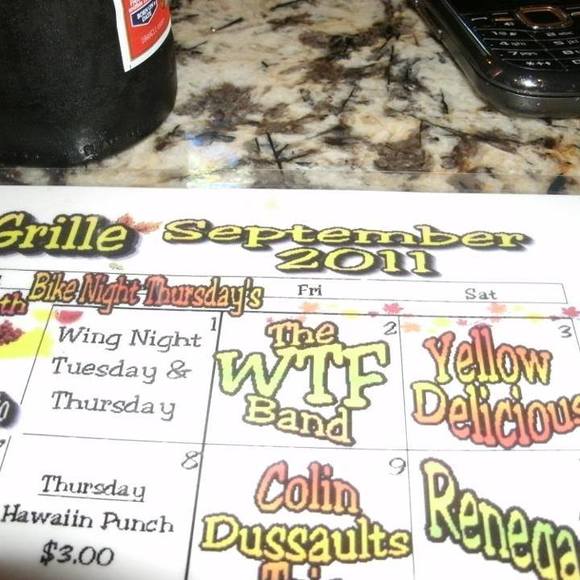 Grille September
2011
th Bike Night Thursday's Fri Sat
1
Wing Night
Tuesday &
Thursday
2
The
WTF
Band
3
Yellow
Delicious
8
Thursday
Hawaiin Punch
$3.00
9
Colin
Dussaults
Trio
Renega